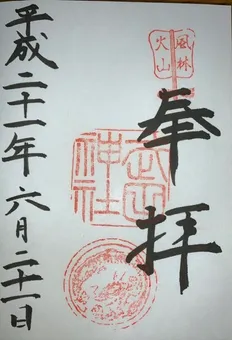 風林
火山
奉拝
武田
神社
平成二十一年六月二十一日